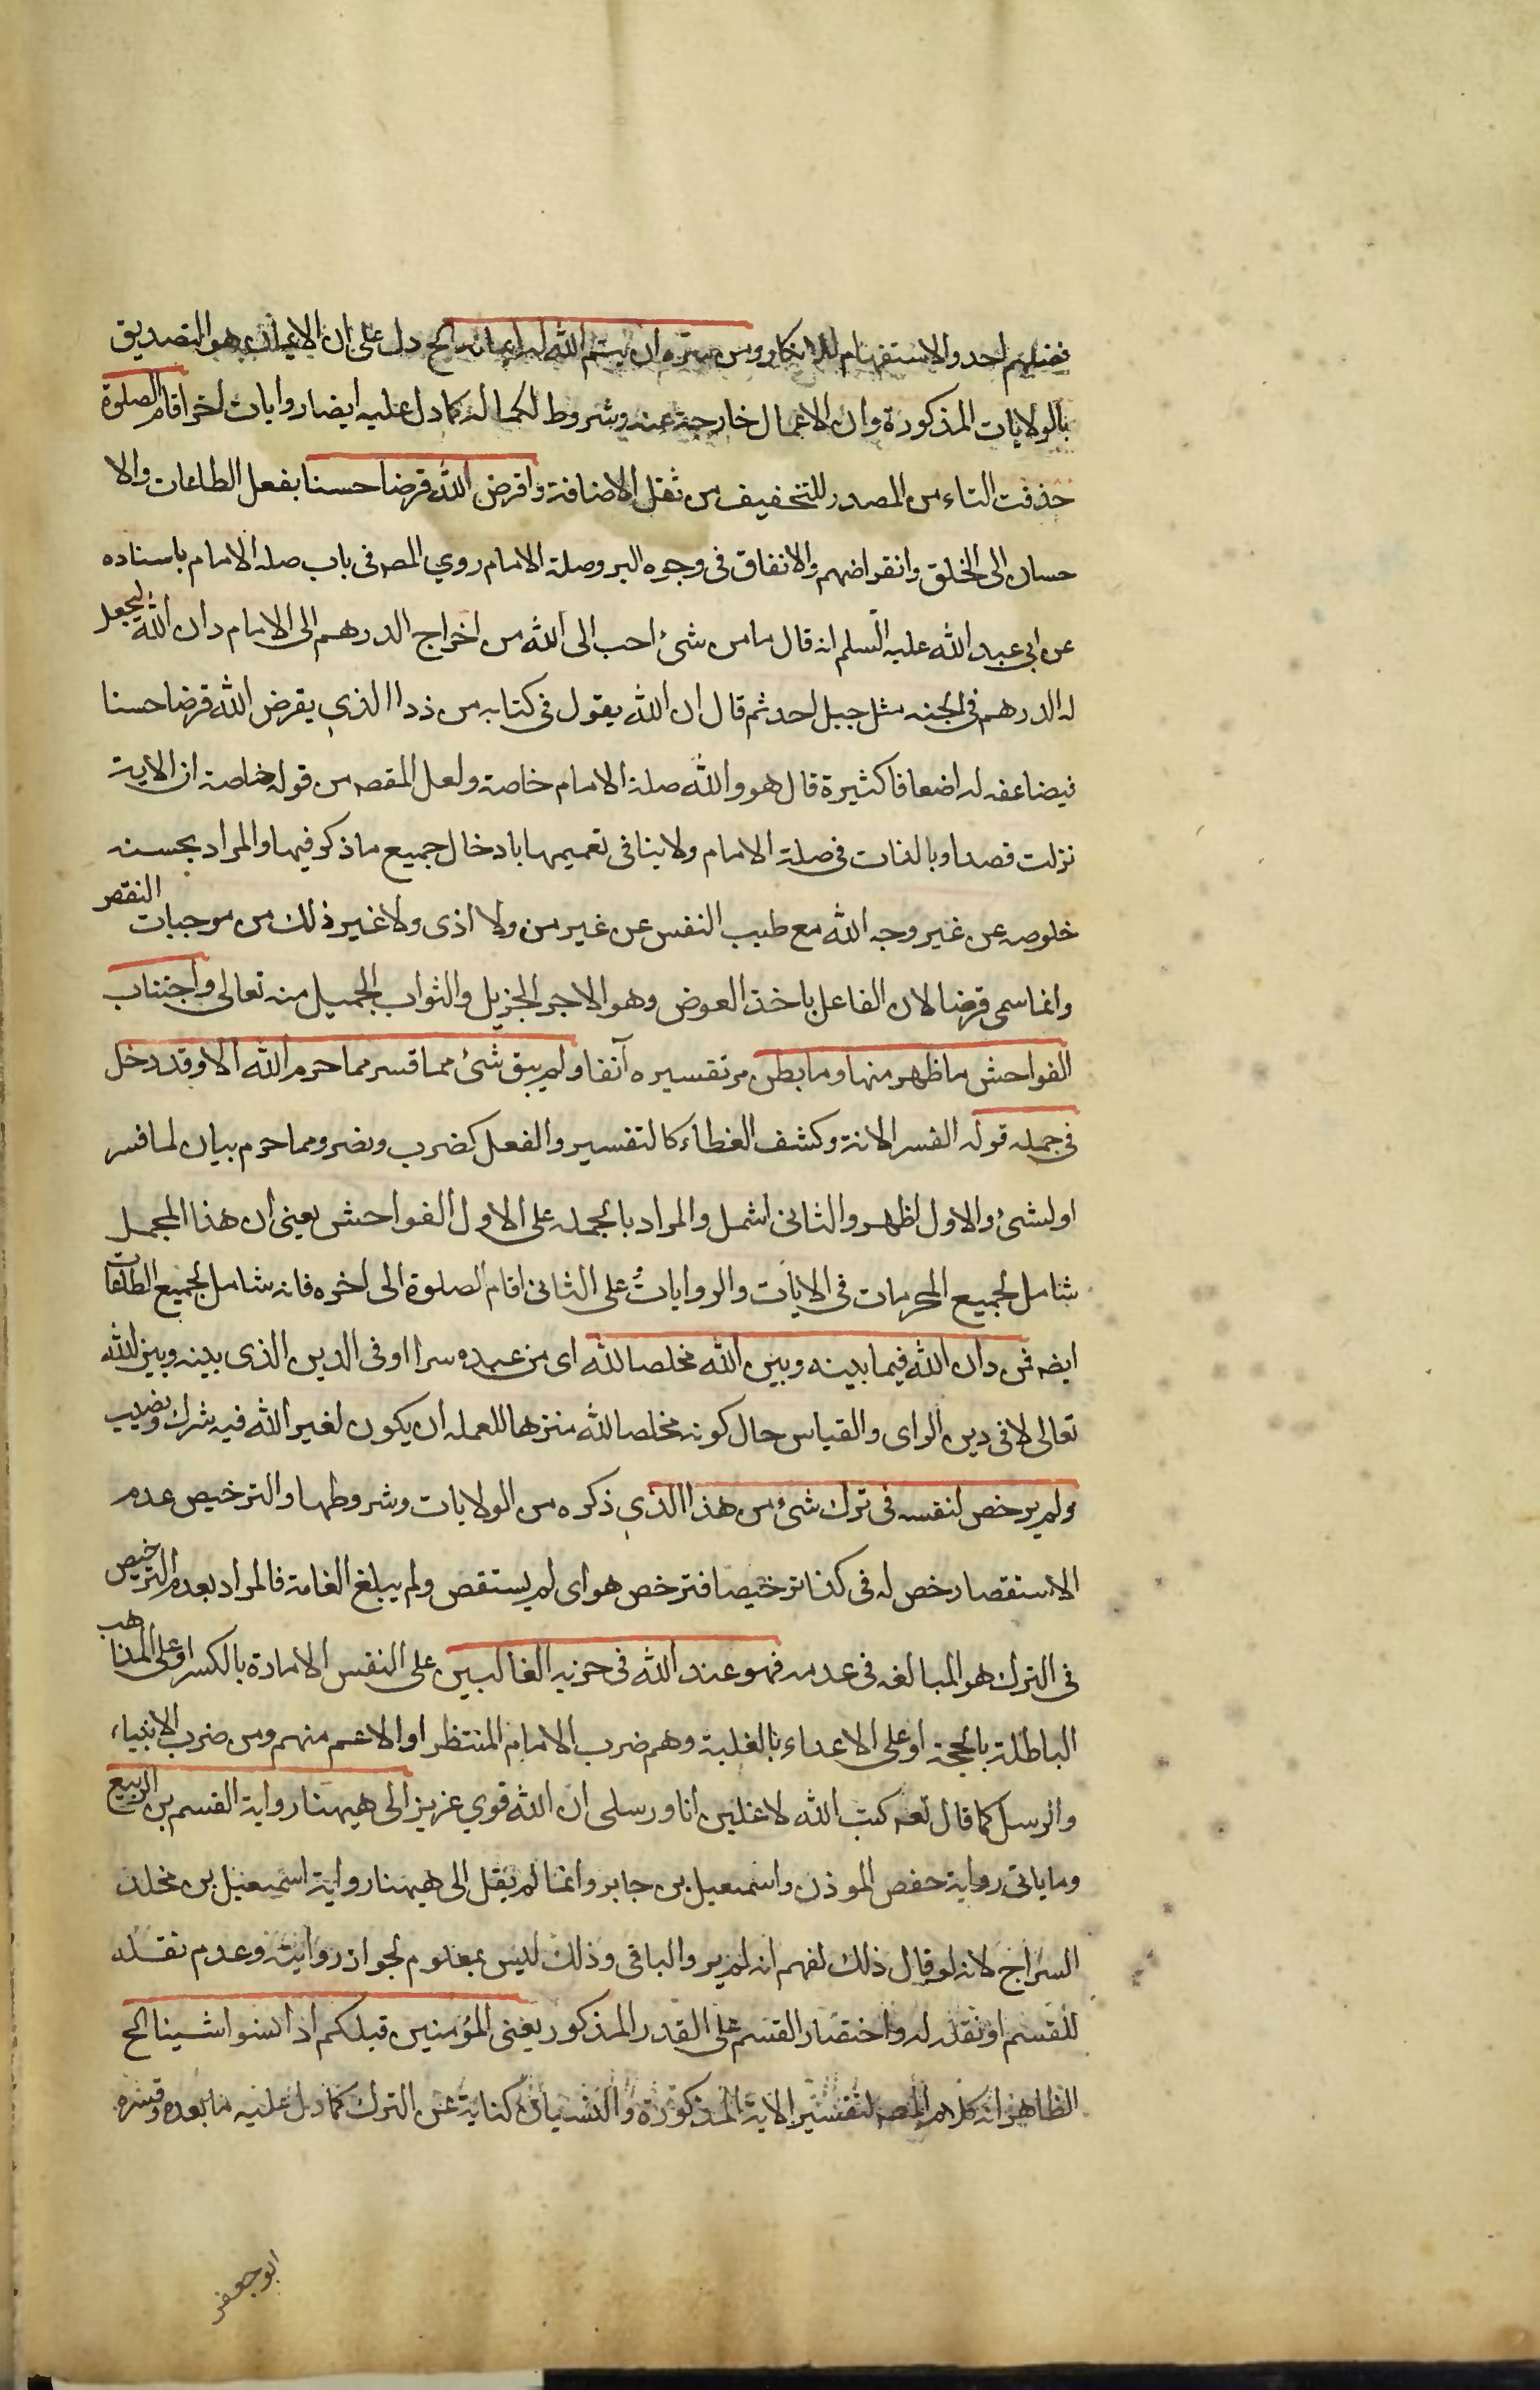 فضلهم احد والاستفهام للانكار ومن سرّه ان يتم الله له ايمانه الخ دل على ان الايمان هو التصديق
بالولايات المذكورة وان الاعمال خارجة عنه وشروط لكماله كما دل عليه ايضا روايات اخر اقام الصلوة
حذفت التاء من المصدر للتخفيف من ثقل الاضافة واقرض الله قرضا حسنا بفعل الطاعات والا
حسان الى الخلق وانقراضهم والانفاق فى وجوه البر وصلة الامام روي المصه فى باب صلة الامام باسناده
عن ابى عبد الله عليه السلم انه قال ما من شئ احب الى الله من اخراج الدرهم الى الامام وان الله ليجعل
له الدرهم فى الجنه مثل جبل احد ثم قال ان الله يقول فى كتابه من ذا الذي يقرض الله قرضا حسنا
فيضاعفه له اضعافا كثيرة قال هو والله صلة الامام خاصة ولعل المقصه من قوله خاصة ان الاية
نزلت قصدا وبالذات فى صلة الامام ولا ينافى تعميمها بادخال جميع ما ذكر فيها والمراد بحسنه
خلوصه عن غير وجه الله مع طيب النفس عن غير من ولا اذى ولا غير ذلك من موجبات النقص
وانما سمى قرضا لان الفاعل ياخذ العوض وهو الاجر الجزيل والثواب الجميل منه تعالى واجتناب
الفواحش ما ظهر منها وما بطن مر تفسيره آنفا ولم يبق شئ مما فسر مما حرم الله الا وقد دخل
فى جمله قوله الفسر الابانة وكشف الغطاء كالتفسير والفعل كضرب ونصر ومما حرم بيان لما فسر
او لشئ والاول اظهر والثانى اشمل والمراد بالجمله على الاول الفواحش يعنى ان هذا المجمل
شامل لجميع المحرمات فى الايات والروايات على الثانى اقام الصلوة الى اخره فانه شامل لجميع الطاعات
ايضه فمن دان الله فيما بينه وبين الله مخلصا لله اى من عبده سرا او فى الدين الذى بينه وبين الله
تعالى لا فى دين الراى والقياس حال كونه مخلصا لله منزها لعمله ان يكون لغير الله فيه شرك ونصيب
ولم يرخص لنفسه فى ترك شئ من هذا الذي ذكره من الولايات وشروطها والترخيص عدم
الاستقصا رخص له فى كذا ترخيصا فترخص هو اى لم يستقص ولم يبلغ الغاية فالمراد بعدم الترخيص
فى الترك هو المبالغه فى عدمه فهو عند الله فى حزبه الغالبين على النفس الامارة بالكسر او على المذاهب
الباطلة بالحجة او على الاعداء بالغلبة وهم حزب الامام المنتظر او الاعم منهم ومن حزب الانبياء
والرسل كما قال تعه كتب الله لاغلبن انا ورسلى ان الله قوي عزيز الى هيهنا رواية القسم بن الربيع
وما ياتى رواية حفص الموذن واسمعيل بن جابر وانما لم يقل الى هيهنا رواية اسمعيل بن مخلد
السراج لانه لو قال ذلك لفهم انه لم يرو الباقى وذلك ليس بمعلوم لجواز روايته وعدم نقله
للقسم او نقله له واختصار القسم على القدر المذكور يعنى المؤمنين قبلكم اذا نسوا شيئا الخ
الظاهر انه كلام المصه لتفسير الاية المذكورة والنسيان كناية عن الترك كما دل عليه ما بعده وفسره
ابو جعفر